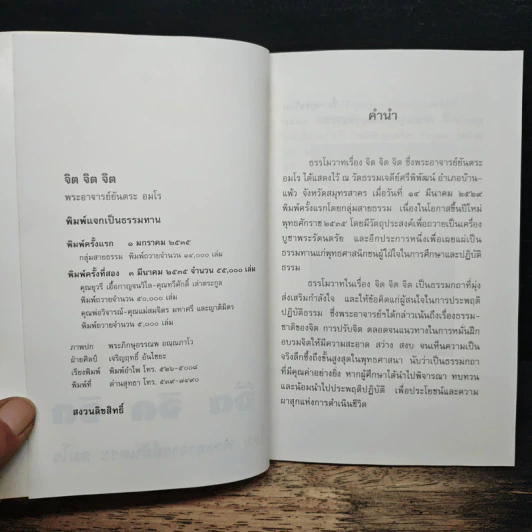 จิต จิต จิต
พระอาจารย์ยันตระ อมโร
พิมพ์แจกเป็นธรรมทาน
พิมพ์ครั้งแรก ๑ มกราคม ๒๕๓๕
กลุ่มสายธรรม พิมพ์ถวายจำนวน ๑๙,๐๐๐ เล่ม
พิมพ์ครั้งที่สอง ๓ มีนาคม ๒๕๓๕ จำนวน ๕๕,๐๐๐ เล่ม
คุณยุวรี เอื้อกาญจนวิไล-คุณทวีศักดิ์ เล่าตระกูล
พิมพ์ถวายจำนวน ๕๐,๐๐๐ เล่ม
คุณพ่อวิจารณ์-คุณแม่สมจิตร มหาศรี และญาติมิตร
พิมพ์ถวายจำนวน ๕,๐๐๐ เล่ม
ภาพปก พระภิกษุอรรณพ อณฺณภาโว
ฝ่ายศิลป์ เจริญฤทธิ์ อันไชยะ
เรียงพิมพ์ พิมพ์อำไพ โทร.
พิมพ์ที่ ด่านสุทธา โทร.
สงวนลิขสิทธิ์
คำนำ
ธรรมโมวาทเรื่อง จิต จิต จิต ซึ่งพระอาจารย์ยันตระ
อมโร ได้แสดงไว้ ณ วัดธรรมเจดีย์ศรีพิพัฒน์ อำเภอบ้าน-
แพ้ว จังหวัดสมุทรสาคร เมื่อวันที่ ๑๔ มีนาคม ๒๕๒๙
พิมพ์ครั้งแรกโดยกลุ่มสายธรรม เนื่องในโอกาสขึ้นปีใหม่
พุทธศักราช ๒๕๓๕ โดยมีวัตถุประสงค์เพื่อถวายเป็นเครื่อง
บูชาพระรัตนตรัย และอีกประการหนึ่งเพื่อเผยแผ่เป็น
ธรรมทานแก่พุทธศาสนิกชนผู้ใฝ่ใจในการศึกษาและปฏิบัติ
ธรรม
ธรรมโมวาทในเรื่อง จิต จิต จิต เป็นธรรมกถาที่มุ่ง
ส่งเสริมกำลังใจ และให้ข้อคิดแก่ผู้สนใจในการประพฤติ
ปฏิบัติธรรม ซึ่งพระอาจารย์ฯได้กล่าวเน้นถึงเรื่องธรรม-
ชาติของจิต การปรับจิต ตลอดจนแนวทางในการหมั่นฝึก
อบรมจิตให้มีความสะอาด สว่าง สงบ จนเห็นความเป็น
จริงลึกซึ้งถึงขั้นสูงสุดในพุทธศาสนา นับว่าเป็นธรรมกถา
ที่มีคุณค่าอย่างยิ่ง หากผู้ศึกษาได้นำไปพิจารณา ทบทวน
และน้อมนำไปประพฤติปฏิบัติ เพื่อประโยชน์และความ
ผาสุกแห่งการดำเนินชีวิต